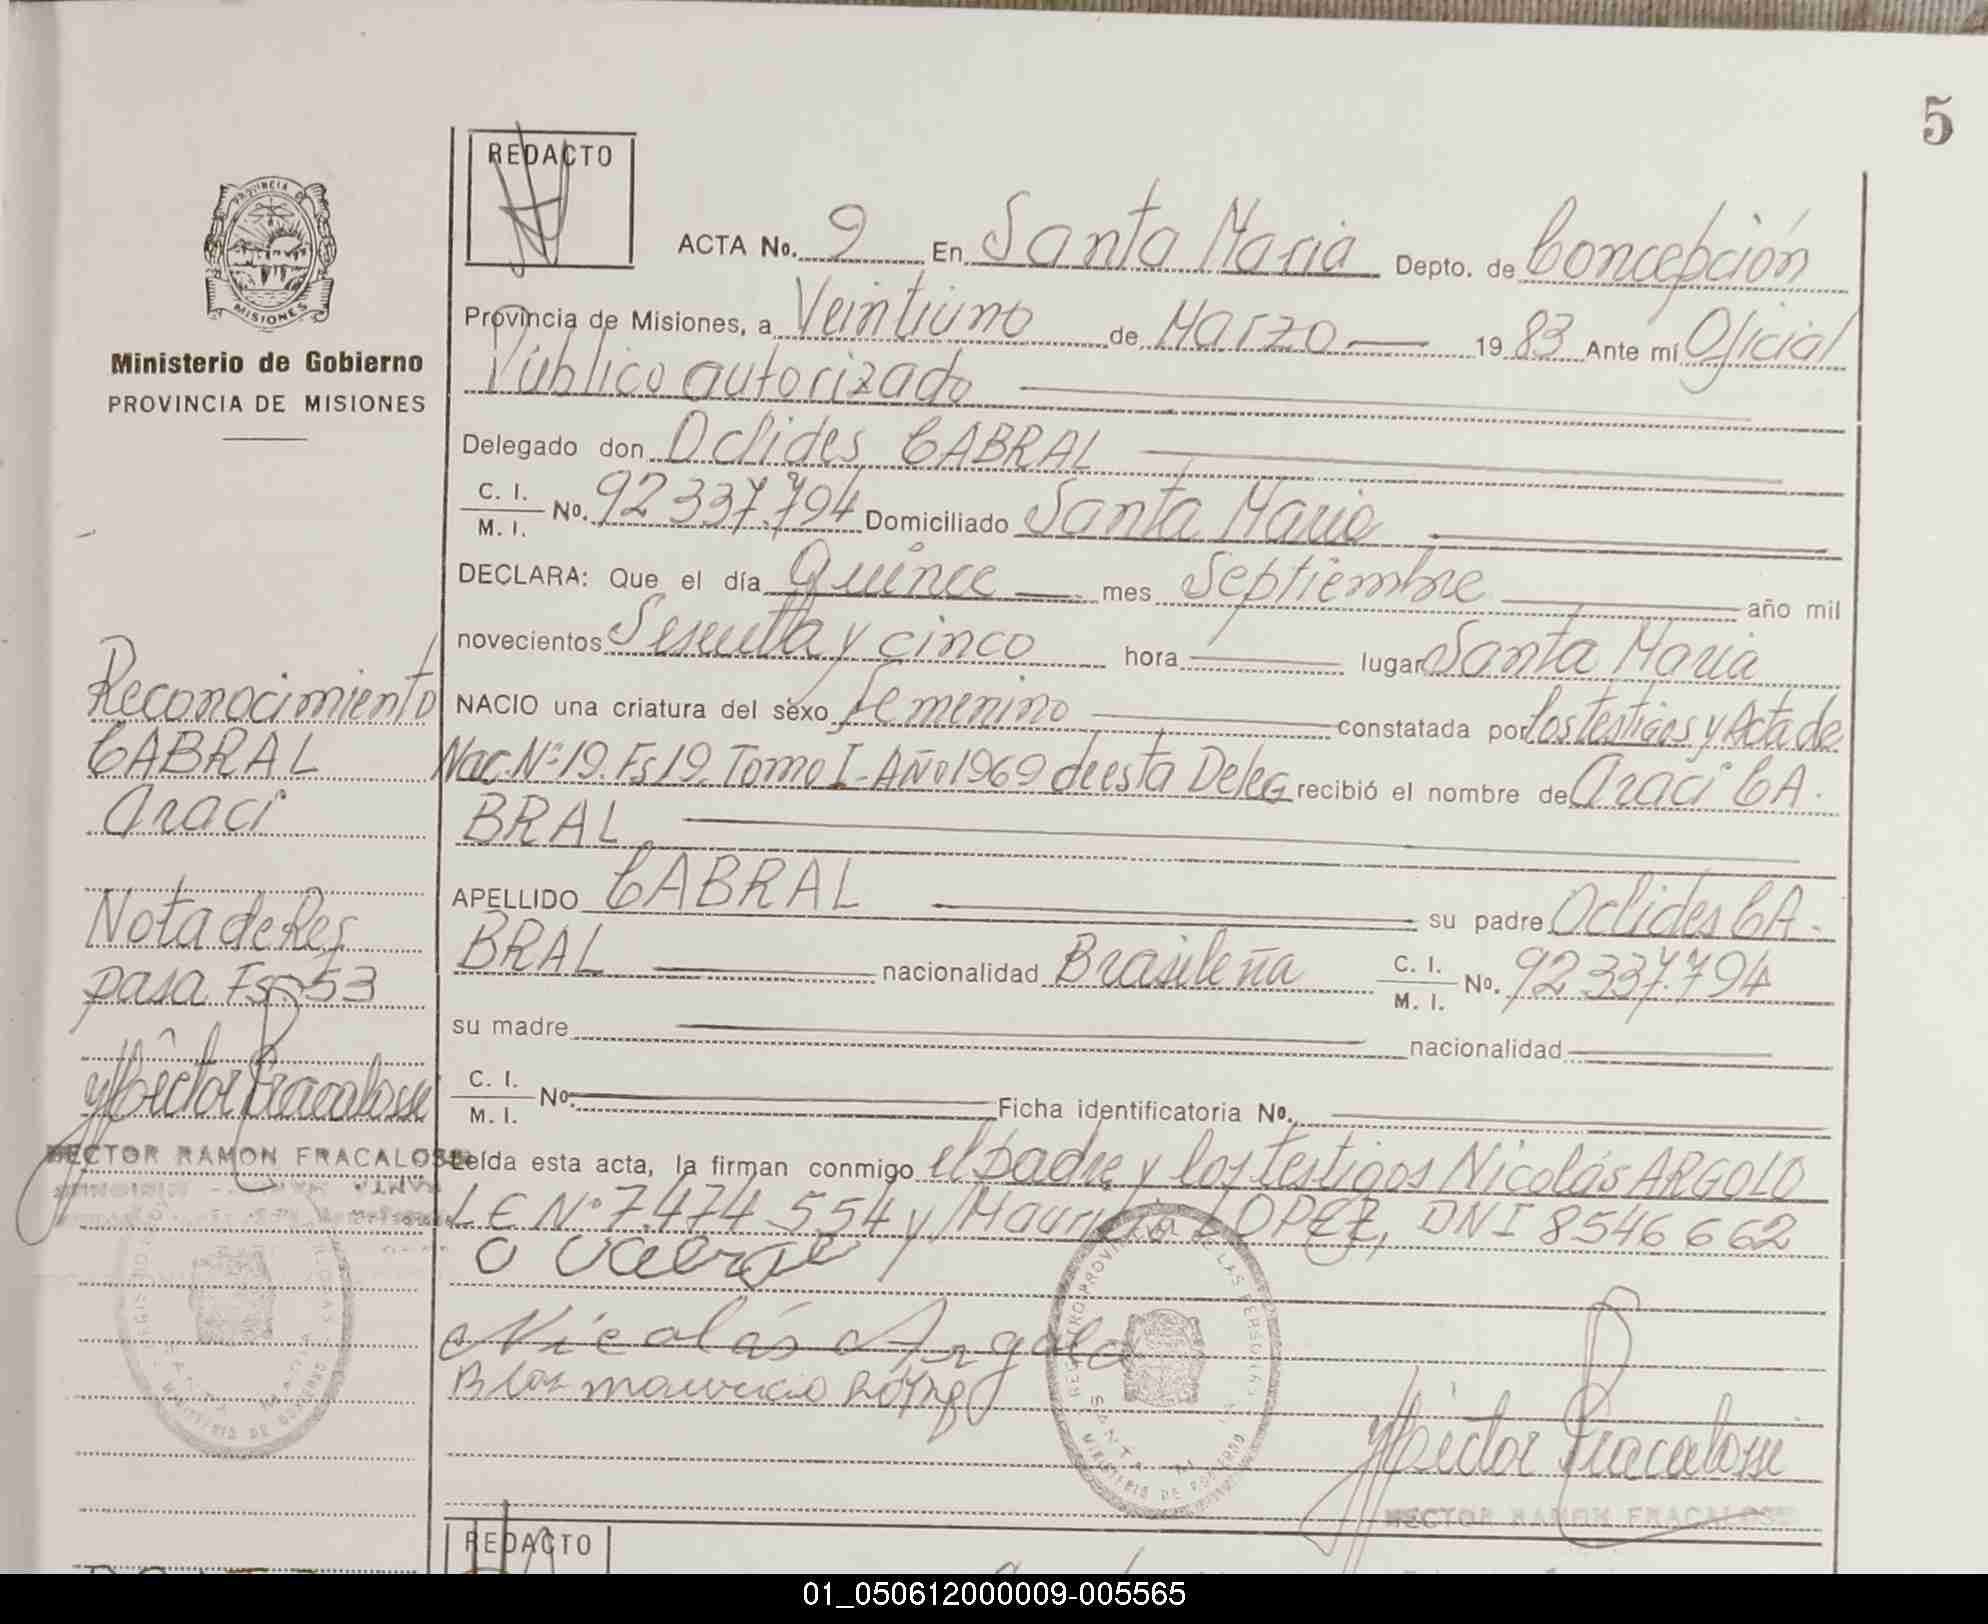 5
REDACTO
PROVINCIA DE
MISIONES
Ministerio de Gobierno
PROVINCIA DE MISIONES
ACTA No. 9 En Santa Maria Depto. de Concepción
Provincia de Misiones, a Veintiuno de Marzo 1983 Ante mí Oficial
Público autorizado
Delegado don Oclides CABRAL
C. I. / M. I. No. 92 337.794 Domiciliado Santa Maria
DECLARA: Que el día quince mes Septiembre año mil
novecientos Sesenta y cinco hora lugar Santa Maria
NACIO una criatura del sexo femenino constatada por los testigos y Acta de
Nac. Nº 19. Fs 19. Tomo I - Año 1969 de esta Deleg recibió el nombre de Araci CA.
BRAL
APELLIDO CABRAL su padre Oclides CA.
BRAL nacionalidad Brasileña C. I. / M. I. No. 92 337.794
su madre nacionalidad
C. I. / M. I. No. Ficha identificatoria No.
Leída esta acta, la firman conmigo el padre y los testigos Nicolás ARGOLO
LE Nº 7.474.554 y Mauricio LOPEZ, DNI 8546662
O Cabral
Nicolás Argolo
Blas mauricio
Héctor Fracalossi
HECTOR RAMON FRACALOSSI
REGISTRO PROVINCIAL DE LAS PERSONAS
SANTA MARIA
MINISTERIO DE GOBIERNO
Reconocimiento
CABRAL
Araci
Nota de Ref
pasa Fs 53
Héctor Fracalossi
HECTOR RAMON FRACALOSSI
REDACTO
01_050612000009-005565